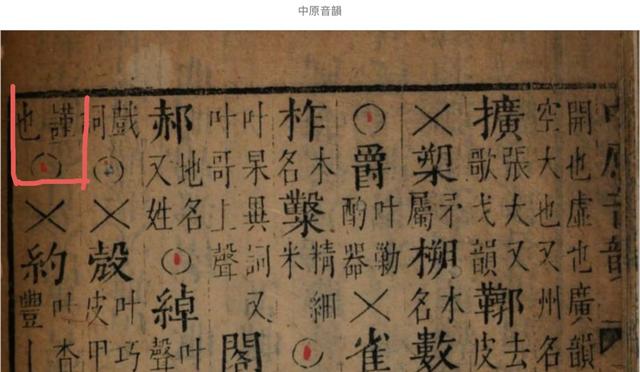 中原音韻
開也虛也廣韻
空大也又州名
擴
張大又
歌戈韻
鞹
去
皮
×
槊
矛
屬
木
名
數
〇
爵
叶勒
酌器
×
雀
柞
木
名
糳
精細
米
〇
叶杲異詞又
叶哥上聲
閣
郝
地名
又姓
〇
綽
叶
聲
戲
〇
×
殼
叶巧
皮甲
謹
也
〇
×
約
叶杳
豐